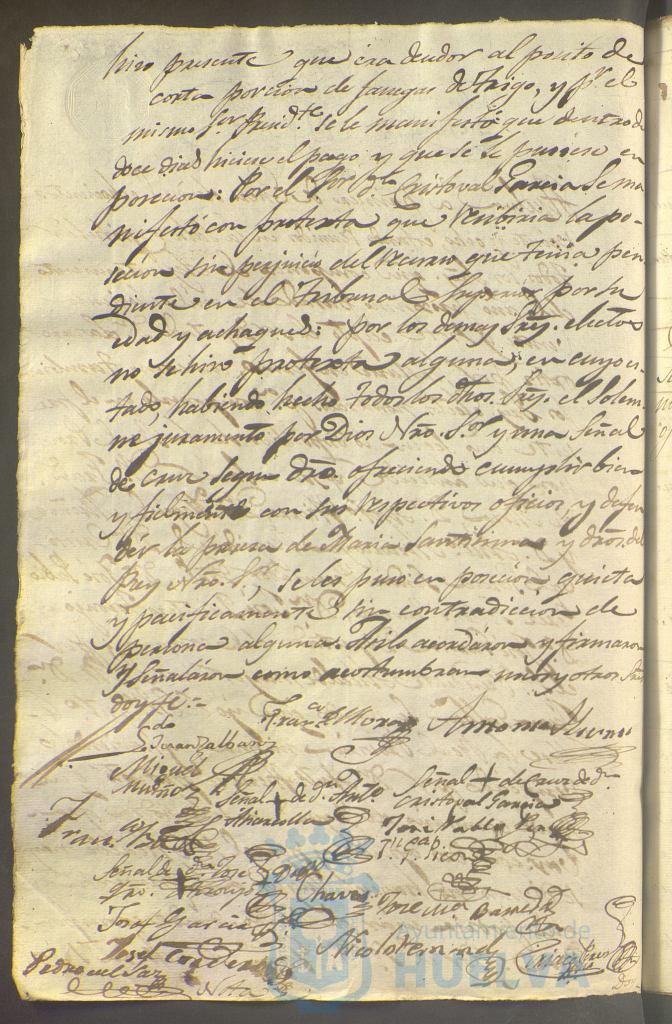 hizo presente que era deudor al posito de
corta porcion de fanegas de trigo, y pr. el
mismo Sr. Presidte. se le manifestó que dentro de
doce dias hiciese el pago y que se le pusiese en
posecion: Por el Cristoval Garcia se ma-
nifestó con protexta que recibiria la po-
secion sin perjuicio del recurso que tenia pen
diente en el tribunal Superior por su
edad y achaques: por los demas Sres. electos
no se hizo protexta alguna, en cuyo es-
tado, habiendo hecho todos los dhos. Sres. el solem-
ne juramento por Dios Nro. Sor. y una Señal
de cruz segun dro. ofreciendo cumplir bien
y fielmente con sus respectivos oficios, y defen
der la pureza de Maria Santissima y dros. del
Rey Nro. Sr., se les puso en posecion quieta
y pacificamente sin contradiccion de
persona alguna. Asi lo acordaron y firmaron
y señalaron como acostumbran unos y otros
doy fé:=
Franco. Mora Antonio
Miguel
Muñoz Señal + de dn. Anto. Señal + de Cruz de dn.
Cristoval Garcia
José Pablo
Señal de dn. José Diego
+ Chaves
Josef Garcia José
Josef Nicolo Bernal
Pedro del
Nota
Ayuntamiento de
HUELVA